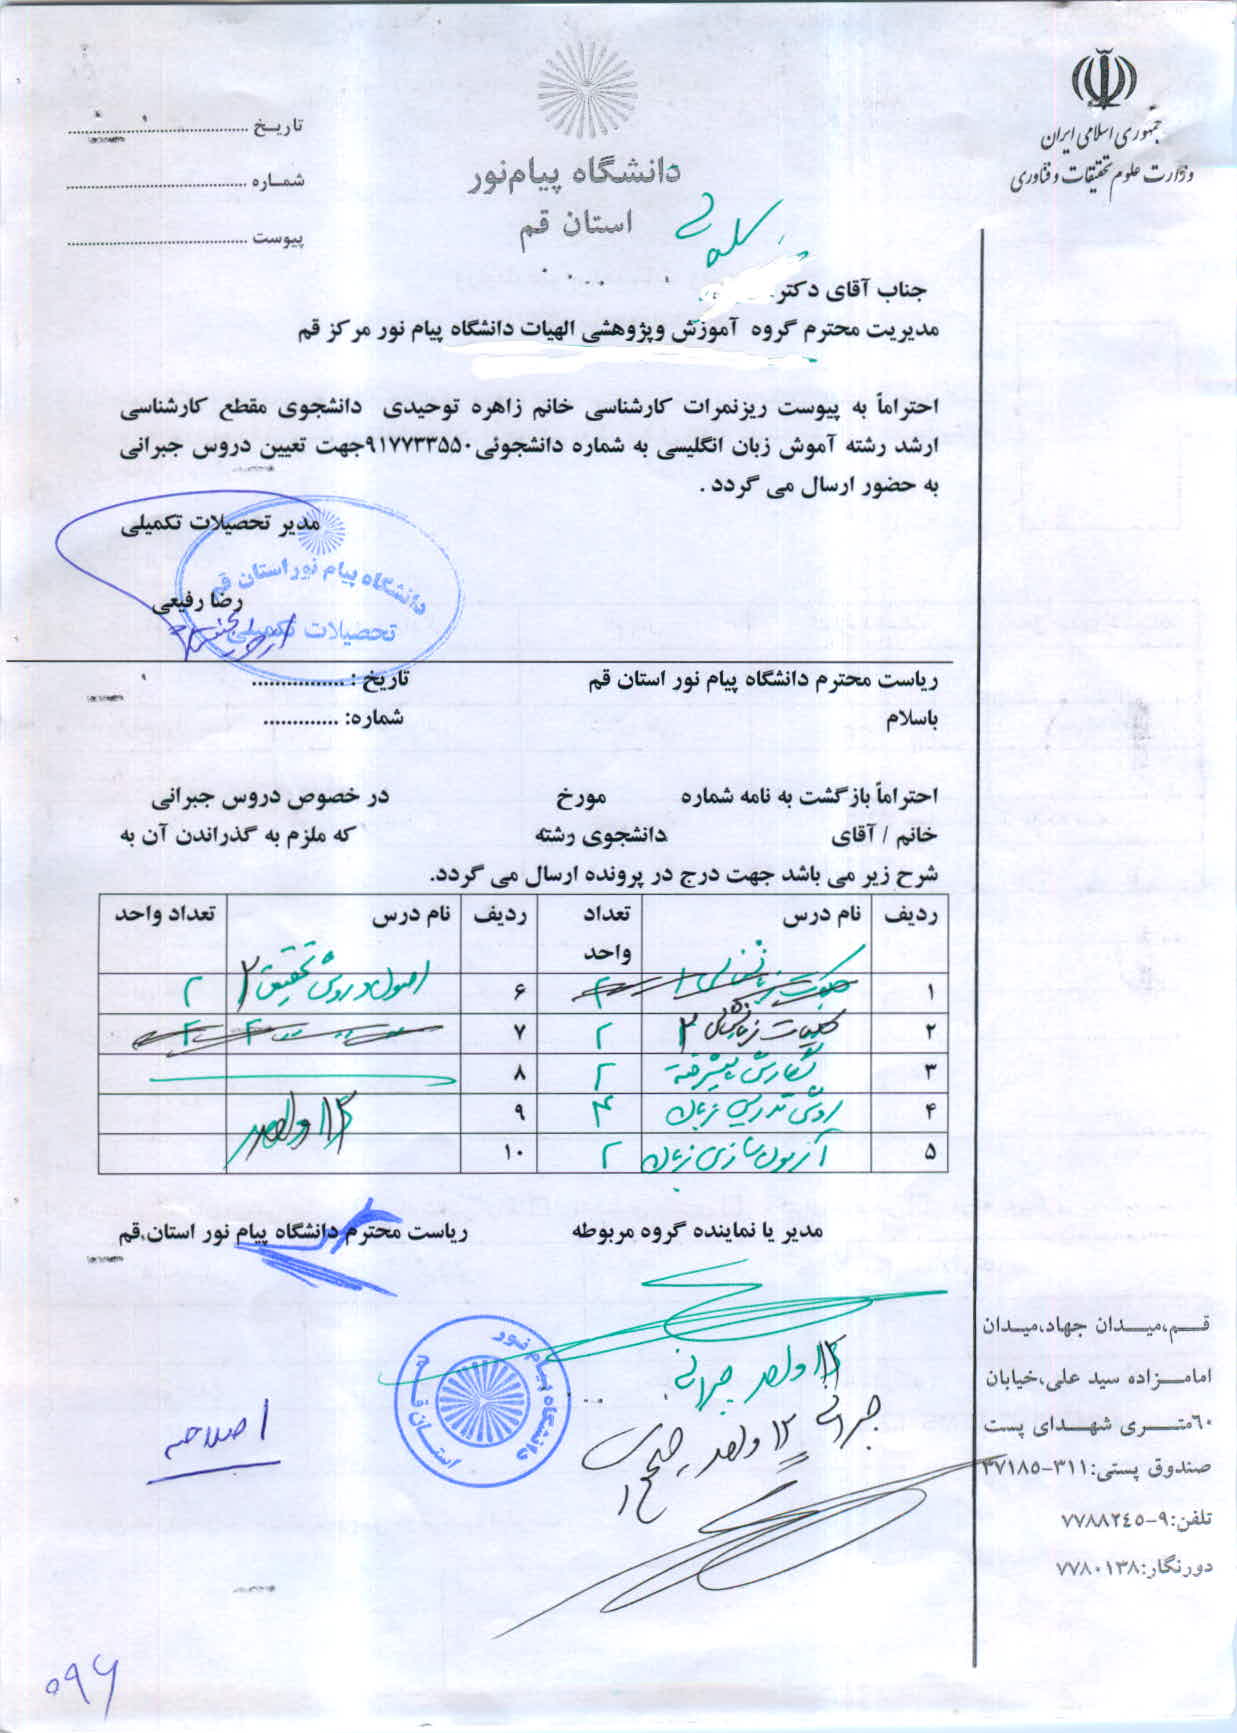 جمهوری اسلامی ایران
وزارت علوم تحقیقات و فناوری
دانشگاه پیام‌نور
استان قم
تاریخ
شماره
پیوست
جناب آقای دکتر
مدیریت محترم گروه آموزش وپژوهشی الهیات دانشگاه پیام نور مرکز قم
احتراماً به پیوست ریزنمرات کارشناسی خانم زاهره توحیدی دانشجوی مقطع کارشناسی
ارشد رشته آموش زبان انگلیسی به شماره دانشجوئی۹۱۷۷۳۳۵۵۰جهت تعیین دروس جبرانی
به حضور ارسال می گردد .
مدیر تحصیلات تکمیلی
دانشگاه پیام نور استان قم
رضا رفیعی
تحصیلات تکمیلی
ریاست محترم دانشگاه پیام نور استان قم تاریخ : ................
باسلام شماره: .............
احتراماً بازگشت به نامه شماره مورخ در خصوص دروس جبرانی
خانم / آقای دانشجوی رشته که ملزم به گذراندن آن به
شرح زیر می باشد جهت درج در پرونده ارسال می گردد.
ردیف نام درس تعداد واحد ردیف نام درس تعداد واحد
۱ ۲ ۶ اصول و روش تحقیق ۲ ۲
۲ کلیات زبانشناسی ۲ ۲ ۷ ۲ ۲
۳ نگارش پیشرفته ۲ ۸
۴ روش تدریس زبان ۴ ۹ ۱۲ واحد
۵ آزمون سازی زبان ۲ ۱۰
مدیر یا نماینده گروه مربوطه ریاست محترم دانشگاه پیام نور استان،قم
دانشگاه پیام نور
استان قم
۱۲ واحد جبرانی
جبرانی ۱۲ واحد صحیح
اصلاحیه
قم،میدان جهاد،میدان
امامزاده سید علی،خیابان
۶۰متری شهدای پست
صندوق پستی:۳۱۱-۳۷۱۸۵
تلفن:۹-۷۷۸۸۲٤٥
دورنگار:۷۷۸۰۱۳۸